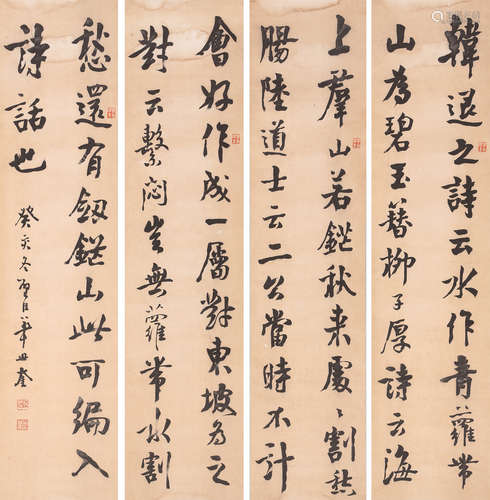 韓退之詩云水作青蘿帶
山為碧玉簪柳子厚詩云海
上羣山若鋩秋来處〻割愁
腸陸道士云二公當時不計
會好作成一屬對東坡為之
對云繫悶豈無蘿帶水割
愁還有劒鋩山此可編入
詩話也
癸亥冬華世奎